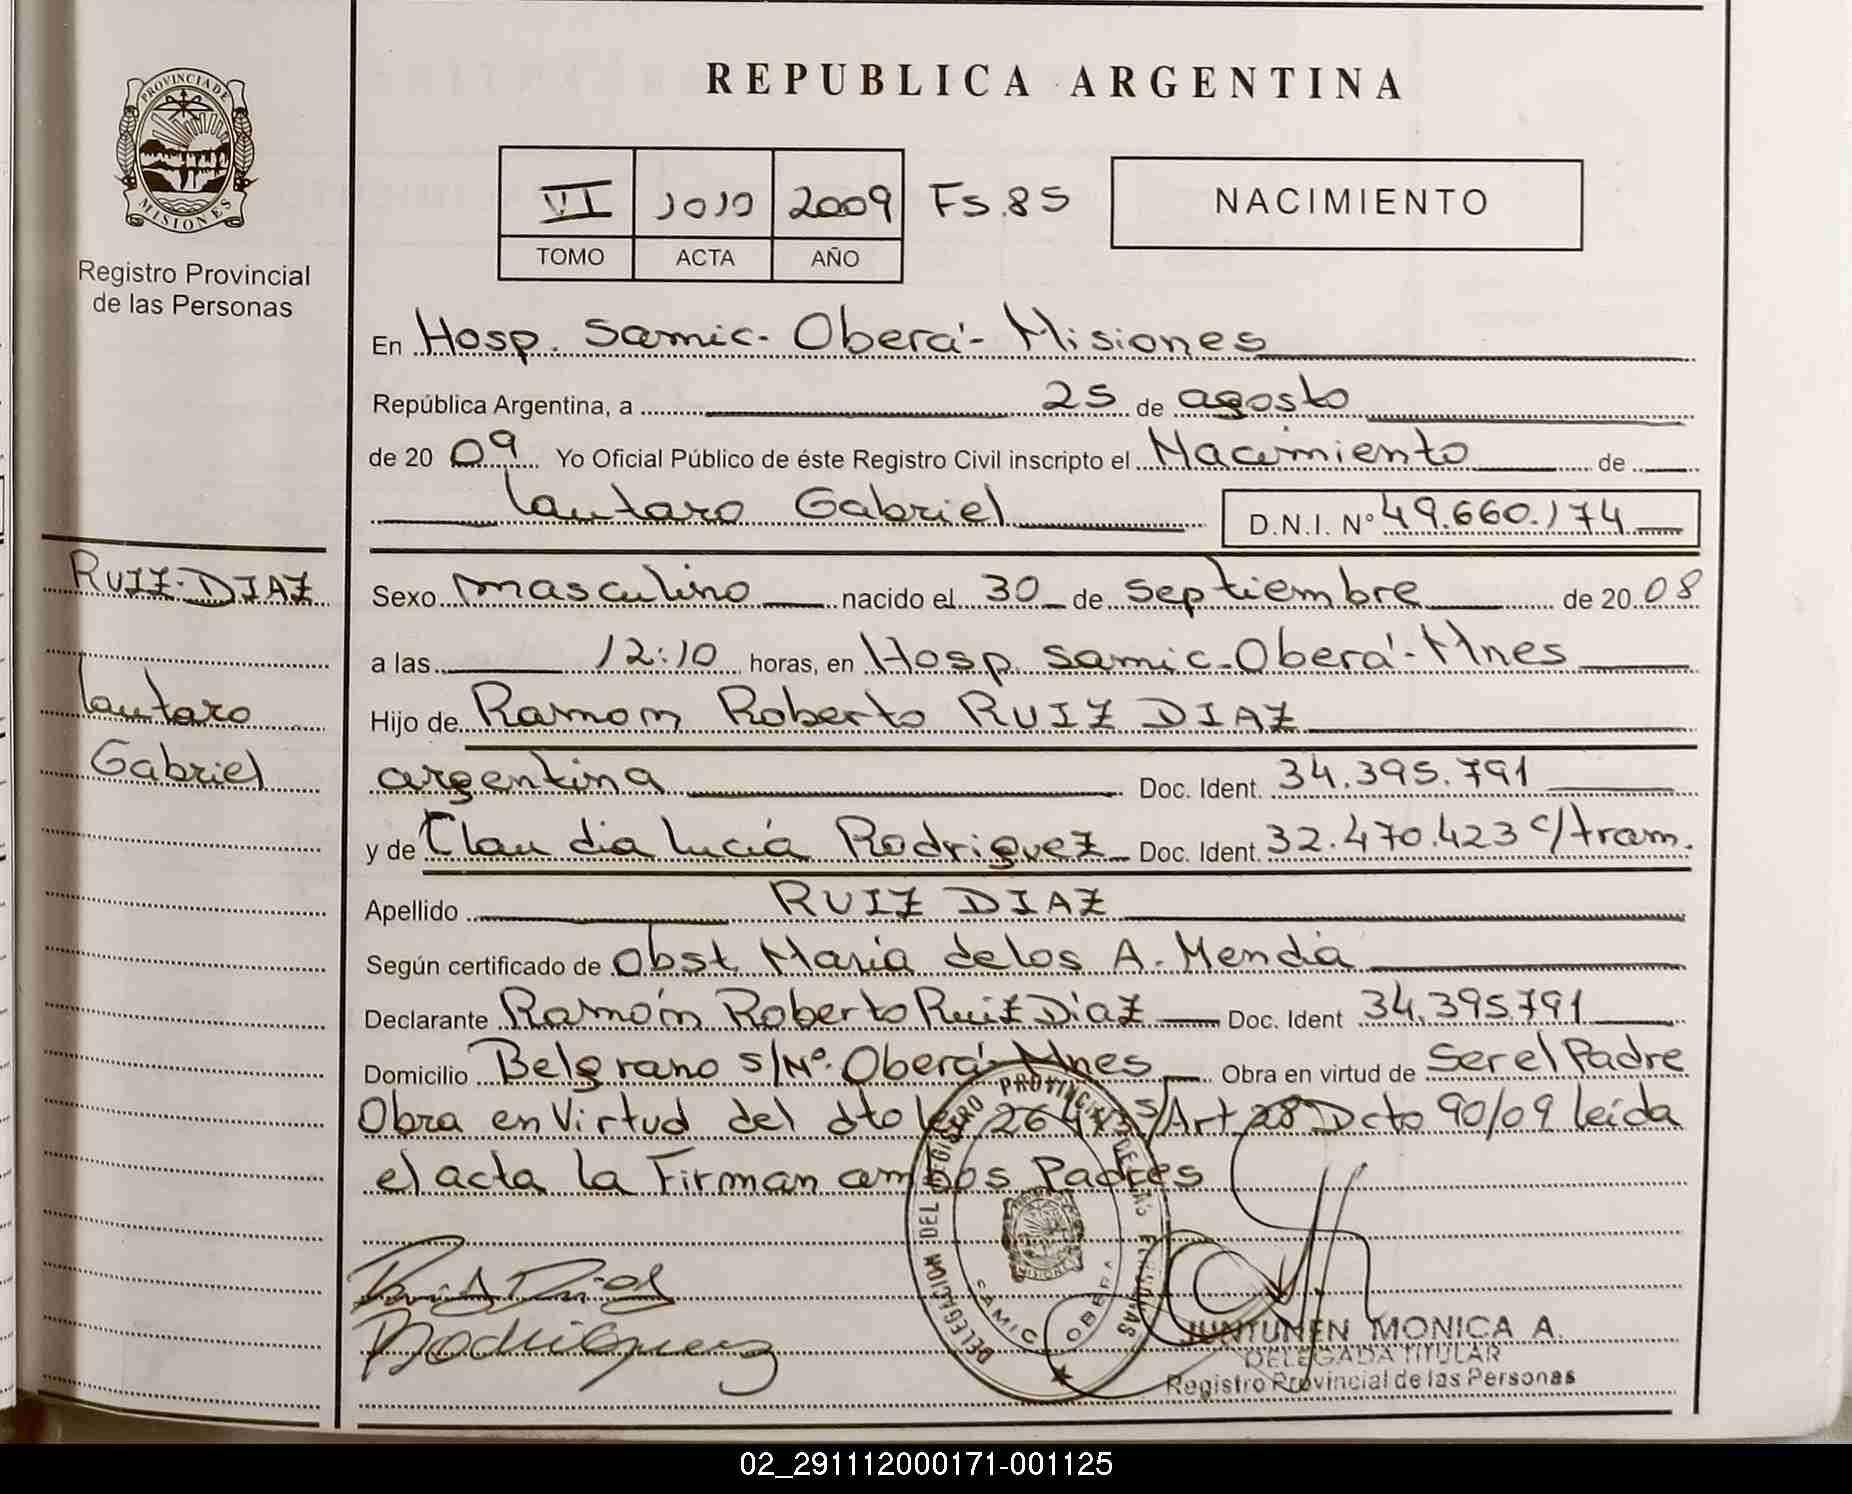 PROVINCIA DE
MISIONES
Registro Provincial
de las Personas
REPUBLICA ARGENTINA
VI 1010 2009 Fs.85
TOMO ACTA AÑO
NACIMIENTO
En Hosp. Samic- Oberá- Misiones
República Argentina, a 25 de agosto
de 2009 Yo Oficial Público de éste Registro Civil inscripto el Nacimiento de
Lautaro Gabriel D.N.I. Nº 49.660.174
RUIZ DIAZ
Lautaro
Gabriel
Sexo masculino nacido el 30 de septiembre de 2008
a las 12:10 horas, en Hosp. Samic-Oberá-Mnes
Hijo de Ramon Roberto RUIZ DIAZ
argentina Doc. Ident. 34.395.791
y de Claudia Lucía Rodriguez Doc. Ident. 32.470.423 c/tram.
Apellido RUIZ DIAZ
Según certificado de Obst. María de los A. Mendia
Declarante Ramón Roberto Ruiz Diaz Doc. Ident 34.395.791
Domicilio Belgrano s/Nº. Oberá-Mnes Obra en virtud de Ser el Padre
Obra en Virtud del dto ley Art 28 Dcto 90/09 leída
el acta la Firman ambos Padres
Ruiz Diaz
Rodriguez
DELEGACION DEL REGISTRO PROVINCIAL DE LAS PERSONAS
SAMIC OBERA
MISIONES
JUNTUNEN MONICA A.
DELEGADA TITULAR
Registro Provincial de las Personas
02_291112000171-001125